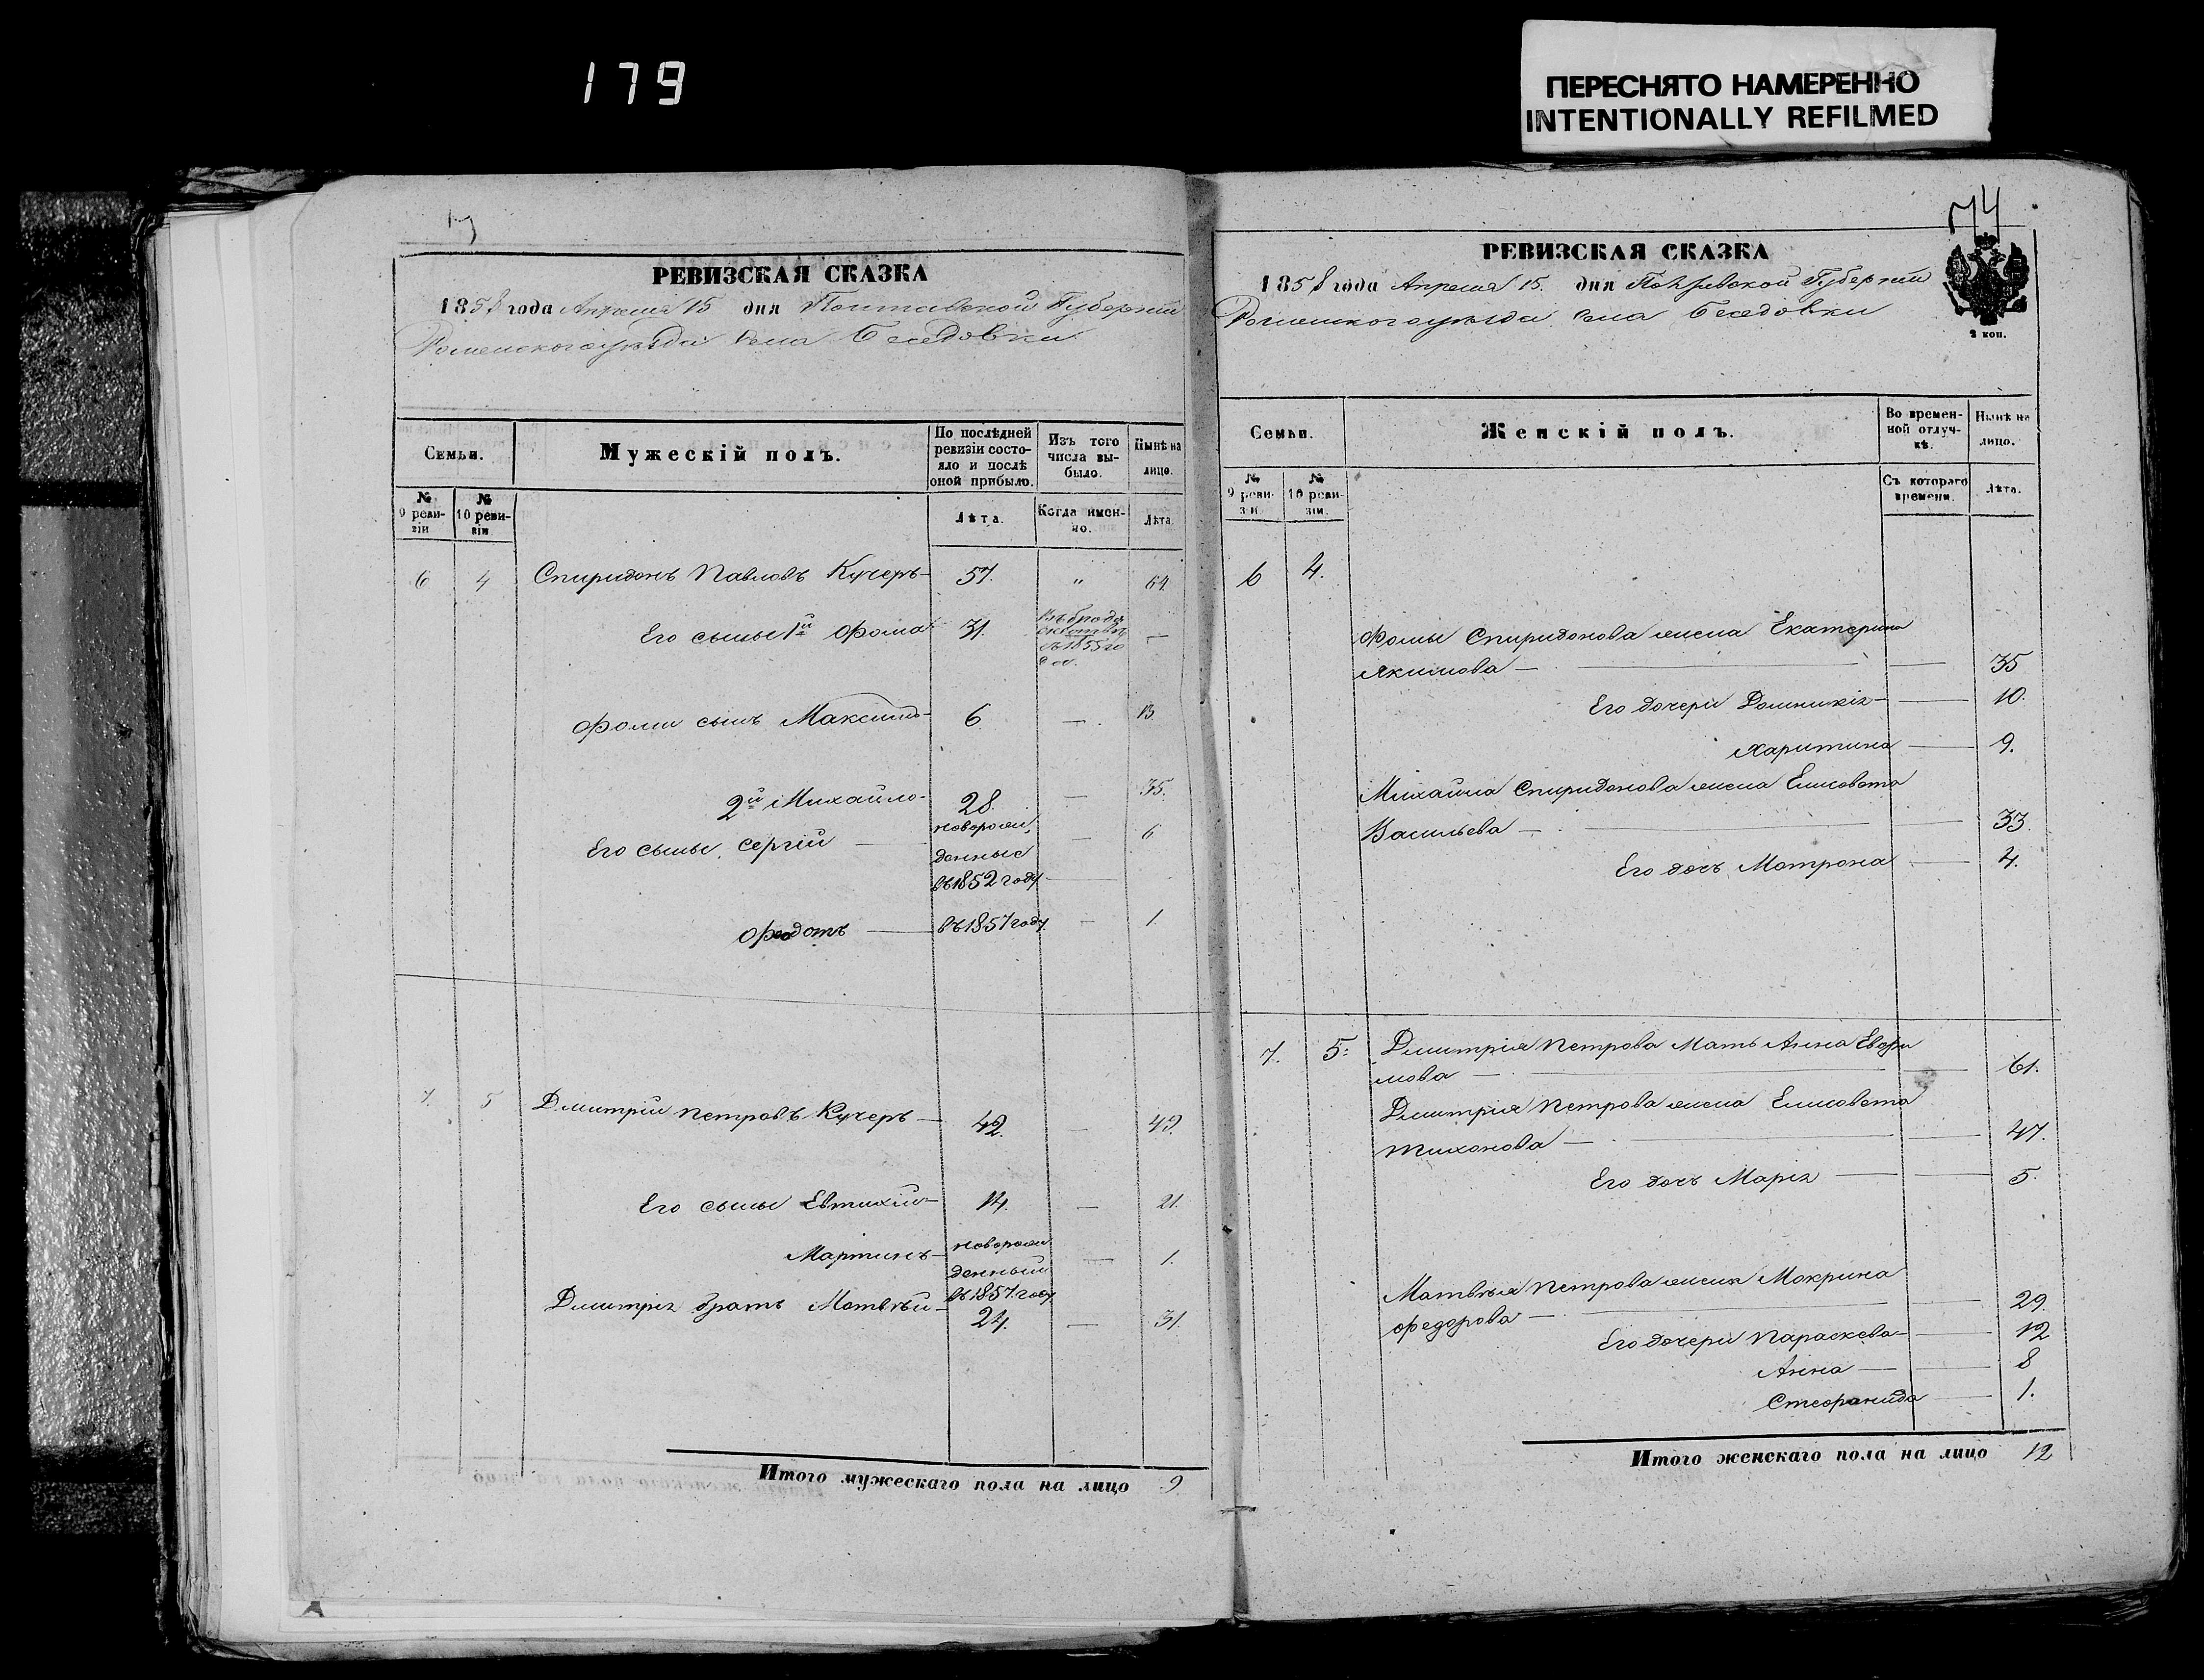 179
ПЕРЕСНЯТО НАМЕРЕННО
INTENTIONALLY REFILMED
РЕВИЗСКАЯ СКАЗКА
1858 года Апреля 15 дня Полтавской Губернии
Роменского уѣзда села Беседовки
Семьи.
Мужескій полъ.
По послѣдней ревизіи состояло и послѣ оной прибыло.
Изъ того числа выбыло.
Нынѣ на лицо.
№ 9 ревизіи
№ 10 ревизіи
Лѣта.
Когда именно.
Лѣта.
6 4 Спиридонъ Павловъ Кучеръ 57. " 64
Его сыны 1й Фома 31. въ 1855 го —
Фомы сынъ Максимъ 6 — 13
2й Михайло 28. — 35.
Его сыны Сергій новорожденные въ 1852 году — 6
Федотъ въ 1857 году — 1.
7. 5 Дмитрій Петровъ Кучеръ 42. — 49.
Его сыны Евтихій 14. — 21.
Мартинъ новорожденный въ 1857 году — 1.
Дмитрія братъ Матвѣй 24. — 31.
Итого мужескаго пола на лицо 9
74
РЕВИЗСКАЯ СКАЗКА
1858 года Апреля 15. дня Полтавской Губернии
Роменского уѣзда села Беседовки
2 коп.
Семьи.
Женскій полъ.
Во временной отлучкѣ.
Нынѣ на лицо.
№ 9 ревизіи
№ 10 ревизіи.
Съ котораго времени.
Лѣта.
6 4.
Фомы Спиридонова жена Екатерина
Якимова — 35
Его дочери Домникія — 10.
Харитина — 9.
Михайла Спиридонова жена Елисовета
Васильева — 33.
Его дочь Матрона — 4.
7. 5. Дмитрія Петрова Мать Анна Евфи
мова — 61.
Дмитрія Петрова жена Елисовета
Тихонова — 47.
Его дочь Марія — 5.
Матвѣя Петрова жена Мокрина
Федорова — 29.
Его дочери Параскева — 12
Анна — 8
Стефанида — 1.
Итого женскаго пола на лицо 12